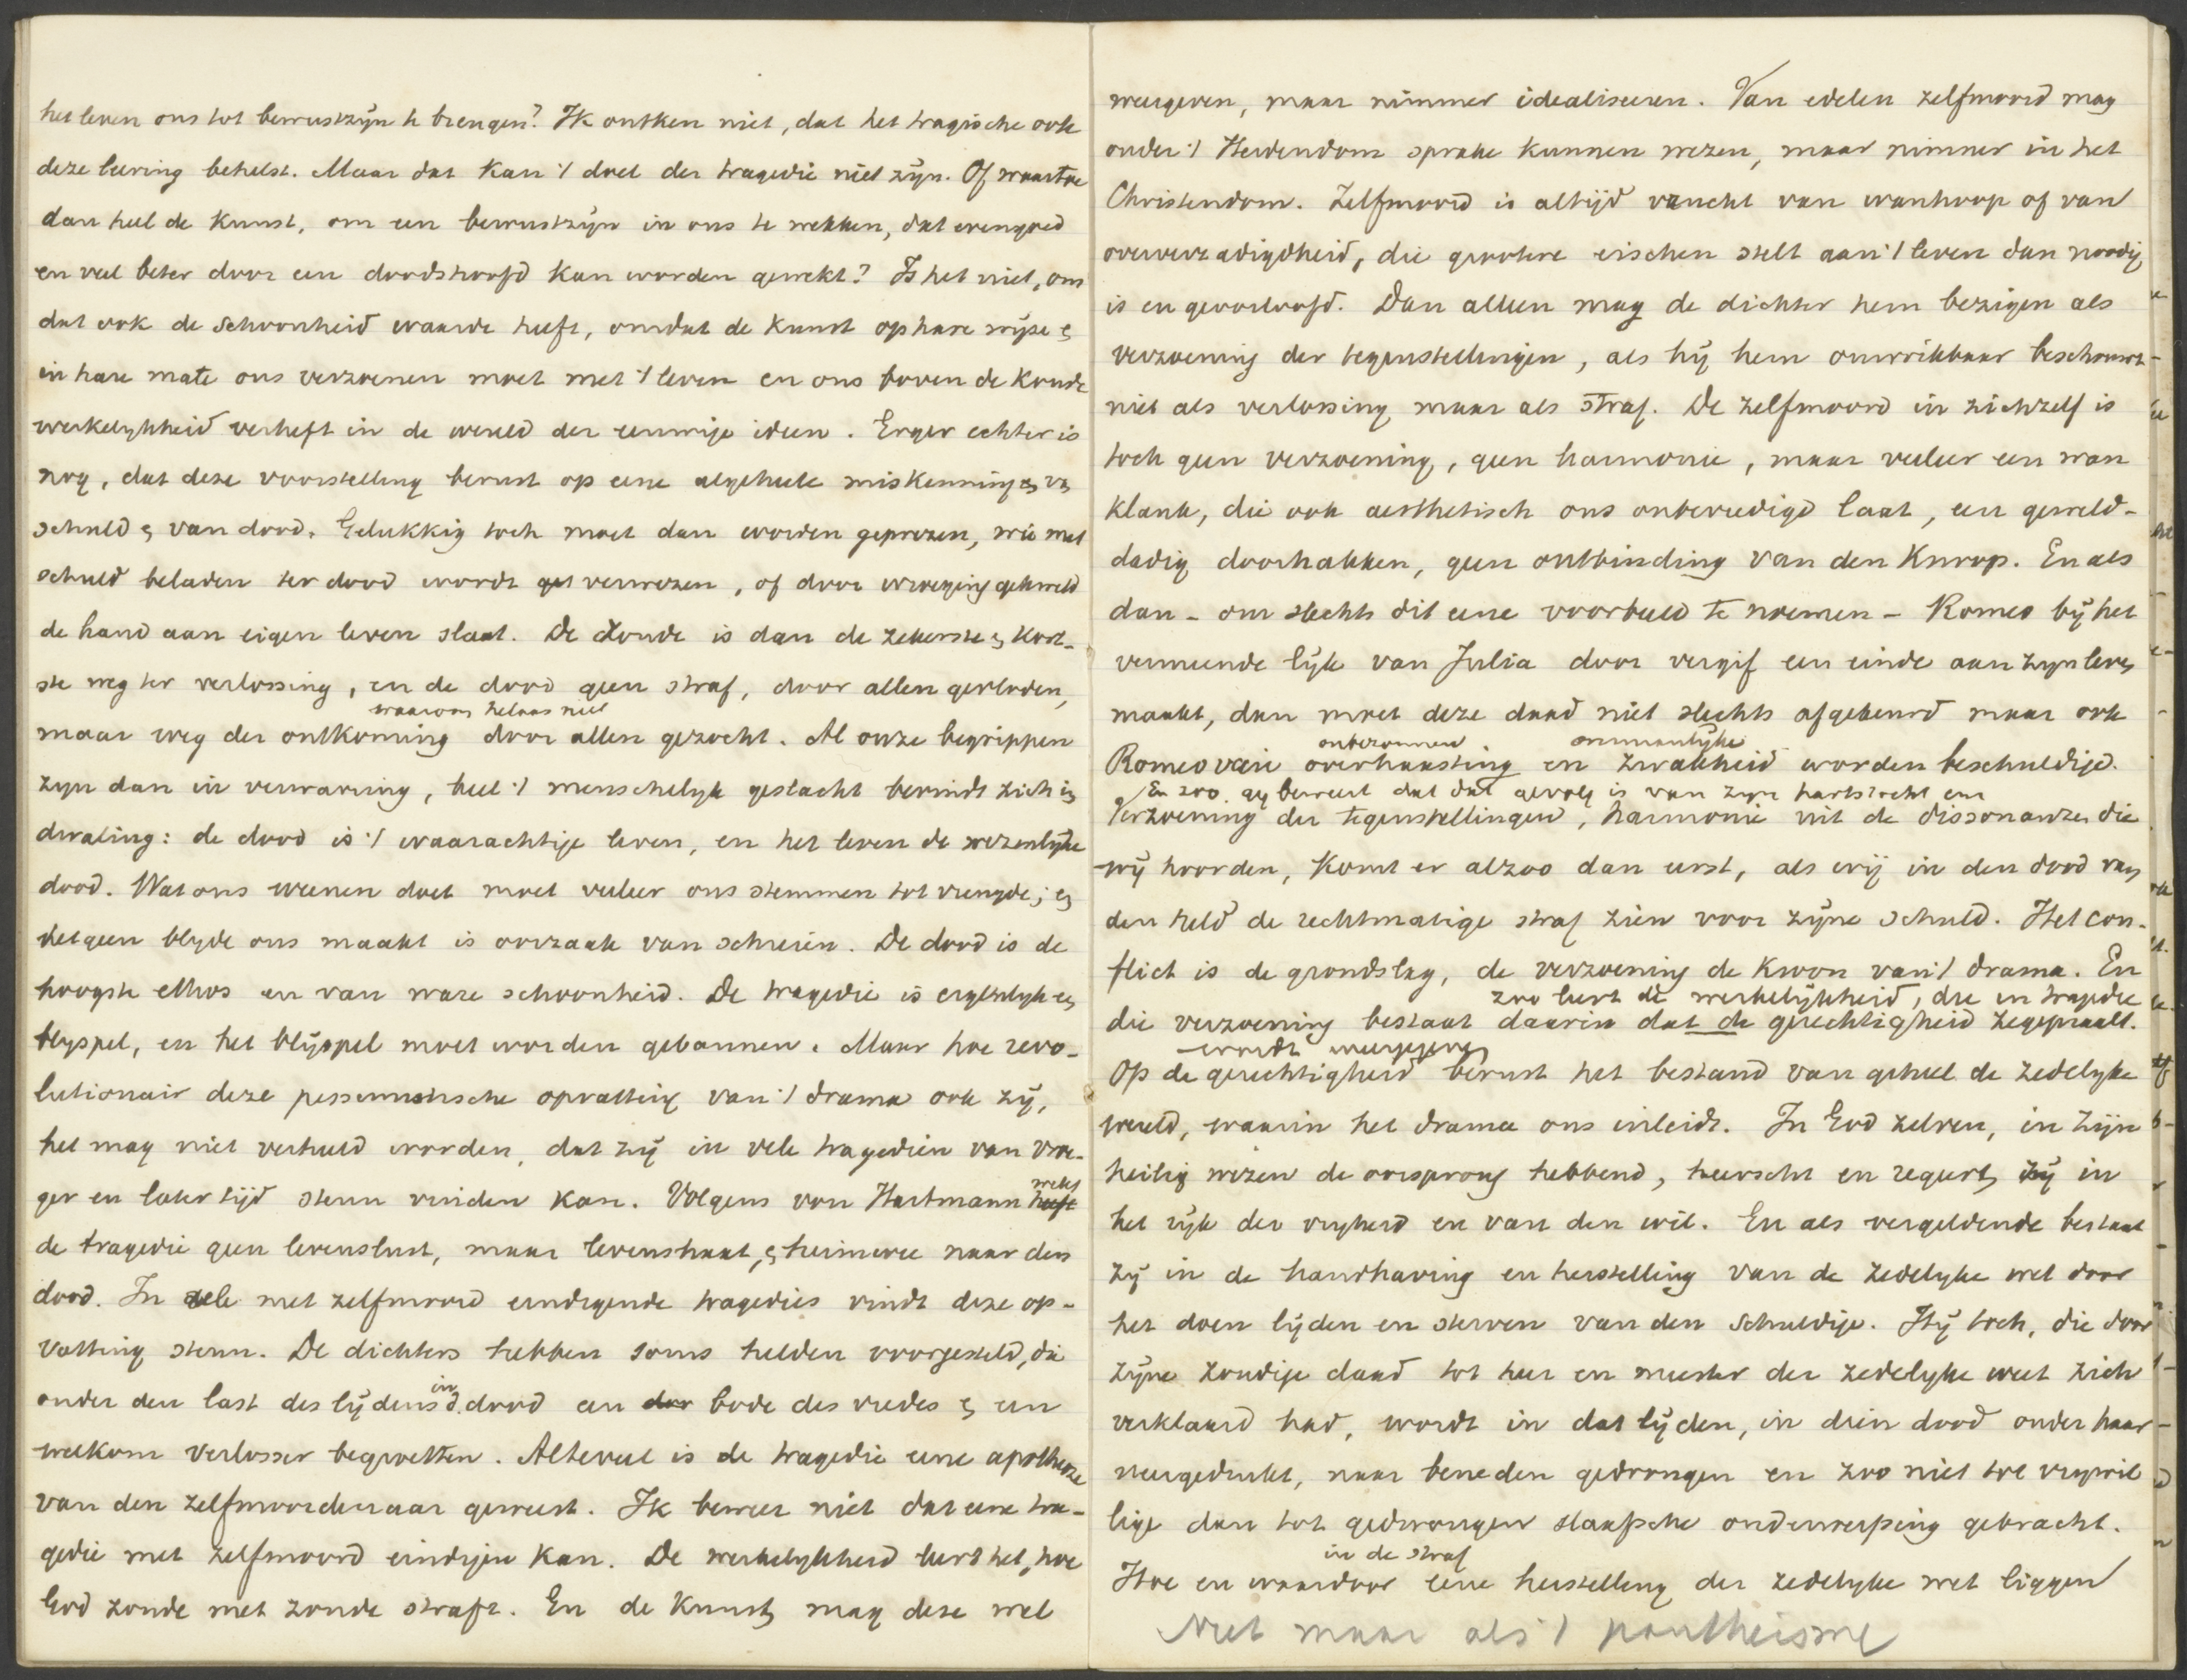 het leven ons tot bewustzijn te brengen? Ik ontken niet, dat het tragische ook
deze leering behelst. Maar dat kan 't doel der tragedie niet zijn. Of waartoe
dan heel de kunst, om een bewustzijn in ons te wekken, dat evengoed
en veel beter door een doodshoofd kan worden gewekt? Is het niet, om
dat ook de schoonheid waarde heeft, omdat de kunst op hare wijze &
in hare mate ons verzoenen moet met 't leven en ons boven de koude
werkelijkheid verheft in de wereld der eeuwige ideen. Erger echter is
nog, dat deze voorstelling berust op eene algeheele miskenning van
schuld & van dood. Gelukkig toch moet dan worden geprezen, wie met
schuld beladen ter dood wordt verwezen, of door wroeging gekweld
de hand aan eigen leven slaat. De zonde is dan de zekerste & kort-
ste weg ter verlossing, en de dood geen straf, door allen gevloden,
waarom helaas niet
maar weg der ontkoming door allen gezocht. Al onze begrippen
zijn dan in verwarring, heel 't menschelijk geslacht bevindt zich in
dwaling: de dood is 't waarachtige leven, en het leven de wezenlijke
dood. Wat ons weenen doet moet veeleer ons stemmen tot vreugde; en
hetgeen blijde ons maakt is oorzaak van schreien. De dood is de
hoogste ethos en van ware schoonheid. De tragedie is eigenlijk een
blijspel, en het blijspel moet worden gebannen. Maar hoe revo-
lutionair deze pessimistische opvatting van 't drama ook zij,
het mag niet verheeld worden, dat zij in vele tragedien van vroe-
ger en later tijd steun vinden kan. Volgens von Hartmann heeft
wekt
de tragedie geen levenslust, maar levenshaat, & heimwee naar den
dood. In vele met zelfmoord eindigende tragedies vindt deze op-
vatting steun. De dichters hebben soms helden voorgesteld, die
onder den last des lijdens in d. dood een bode des vredes & een
welkom verlosser begroetten. Alteveel is de tragedie eene apotheoze
van den zelfmoordenaar geweest. Ik beweer niet dat eene tra-
gedie met zelfmoord eindigen kan. De werkelijkheid leert het, hoe
God zonde met zonde straft. En de kunst mag deze wel
weergeven, maar nimmer idealiseeren. Van edelen zelfmoord mag
onder 't Heidendom sprake kunnen wezen, maar nimmer in het
Christendom. Zelfmoord is altijd vrucht van wanhoop of van
oververzadigdheid, die grootere eischen stelt aan 't leven dan noodig
is en geoorloofd. Dan alleen mag de dichter hem bezigen als
verzoening der tegenstellingen, als hij hem onwrikbaar beschouwt
niet als verlossing maar als straf. De zelfmoord in zichzelf is
toch geen verzoening, geen harmonie, maar veeleer een wan
klank, die ook aesthetisch ons onbevredigd laat, een geweld-
dadig doorhakken, geen ontbinding van den knoop. En als
dan - om slechts dit eene voorbeeld te noemen - Romeo bij het
vermeende lijk van Julia door vergif een einde aan zijn leven
maakt, dan moet deze daad niet slechts afgekeurd maar ook
onbezonnen onmanlijke
Romeo van overhaasting en zwakheid worden beschuldigd.
En zoo beweert dat dat gevolg is van zijn hartstocht
Verzoening der tegenstellingen, harmonie uit de dissonanten die
wij hoorden, komt er alzoo dan eerst, als wij in den dood van
den held de rechtmatige straf zien voor zijne schuld. Het con-
flict is de grondslag, de verzoening de kroon van 't drama. En
zoo leert de werkelijkheid, die in tragedie
die verzoening bestaat daarin dat de gerechtigheid zegepraalt.
wordt weergegeven
Op de gerechtigheid berust het bestand van geheel de zedelijke
wereld, waarin het drama ons inleidt. In God zelven, in zijn
heilig wezen de oorsprong hebbend, heerscht en regeert zij in
het rijk der vrijheid en van den wil. En als vergeldende bestaat
zij in de handhaving en herstelling van de zedelijke wet door
het doen lijden en sterven van den schuldige. Hij toch, die door
zijne zondige daad tot heer en meester der zedelijke wet zich
verklaard had, wordt in dat lijden, in dien dood onder haar
neergedrukt, naar beneden gedrongen en zoo niet tot vrijwil
lige dan tot gedwongen slaafsche onderwerping gebracht.
in de straf
Hoe en waardoor eene herstelling der zedelijke wet liggen
Niet maar als 't pantheisme